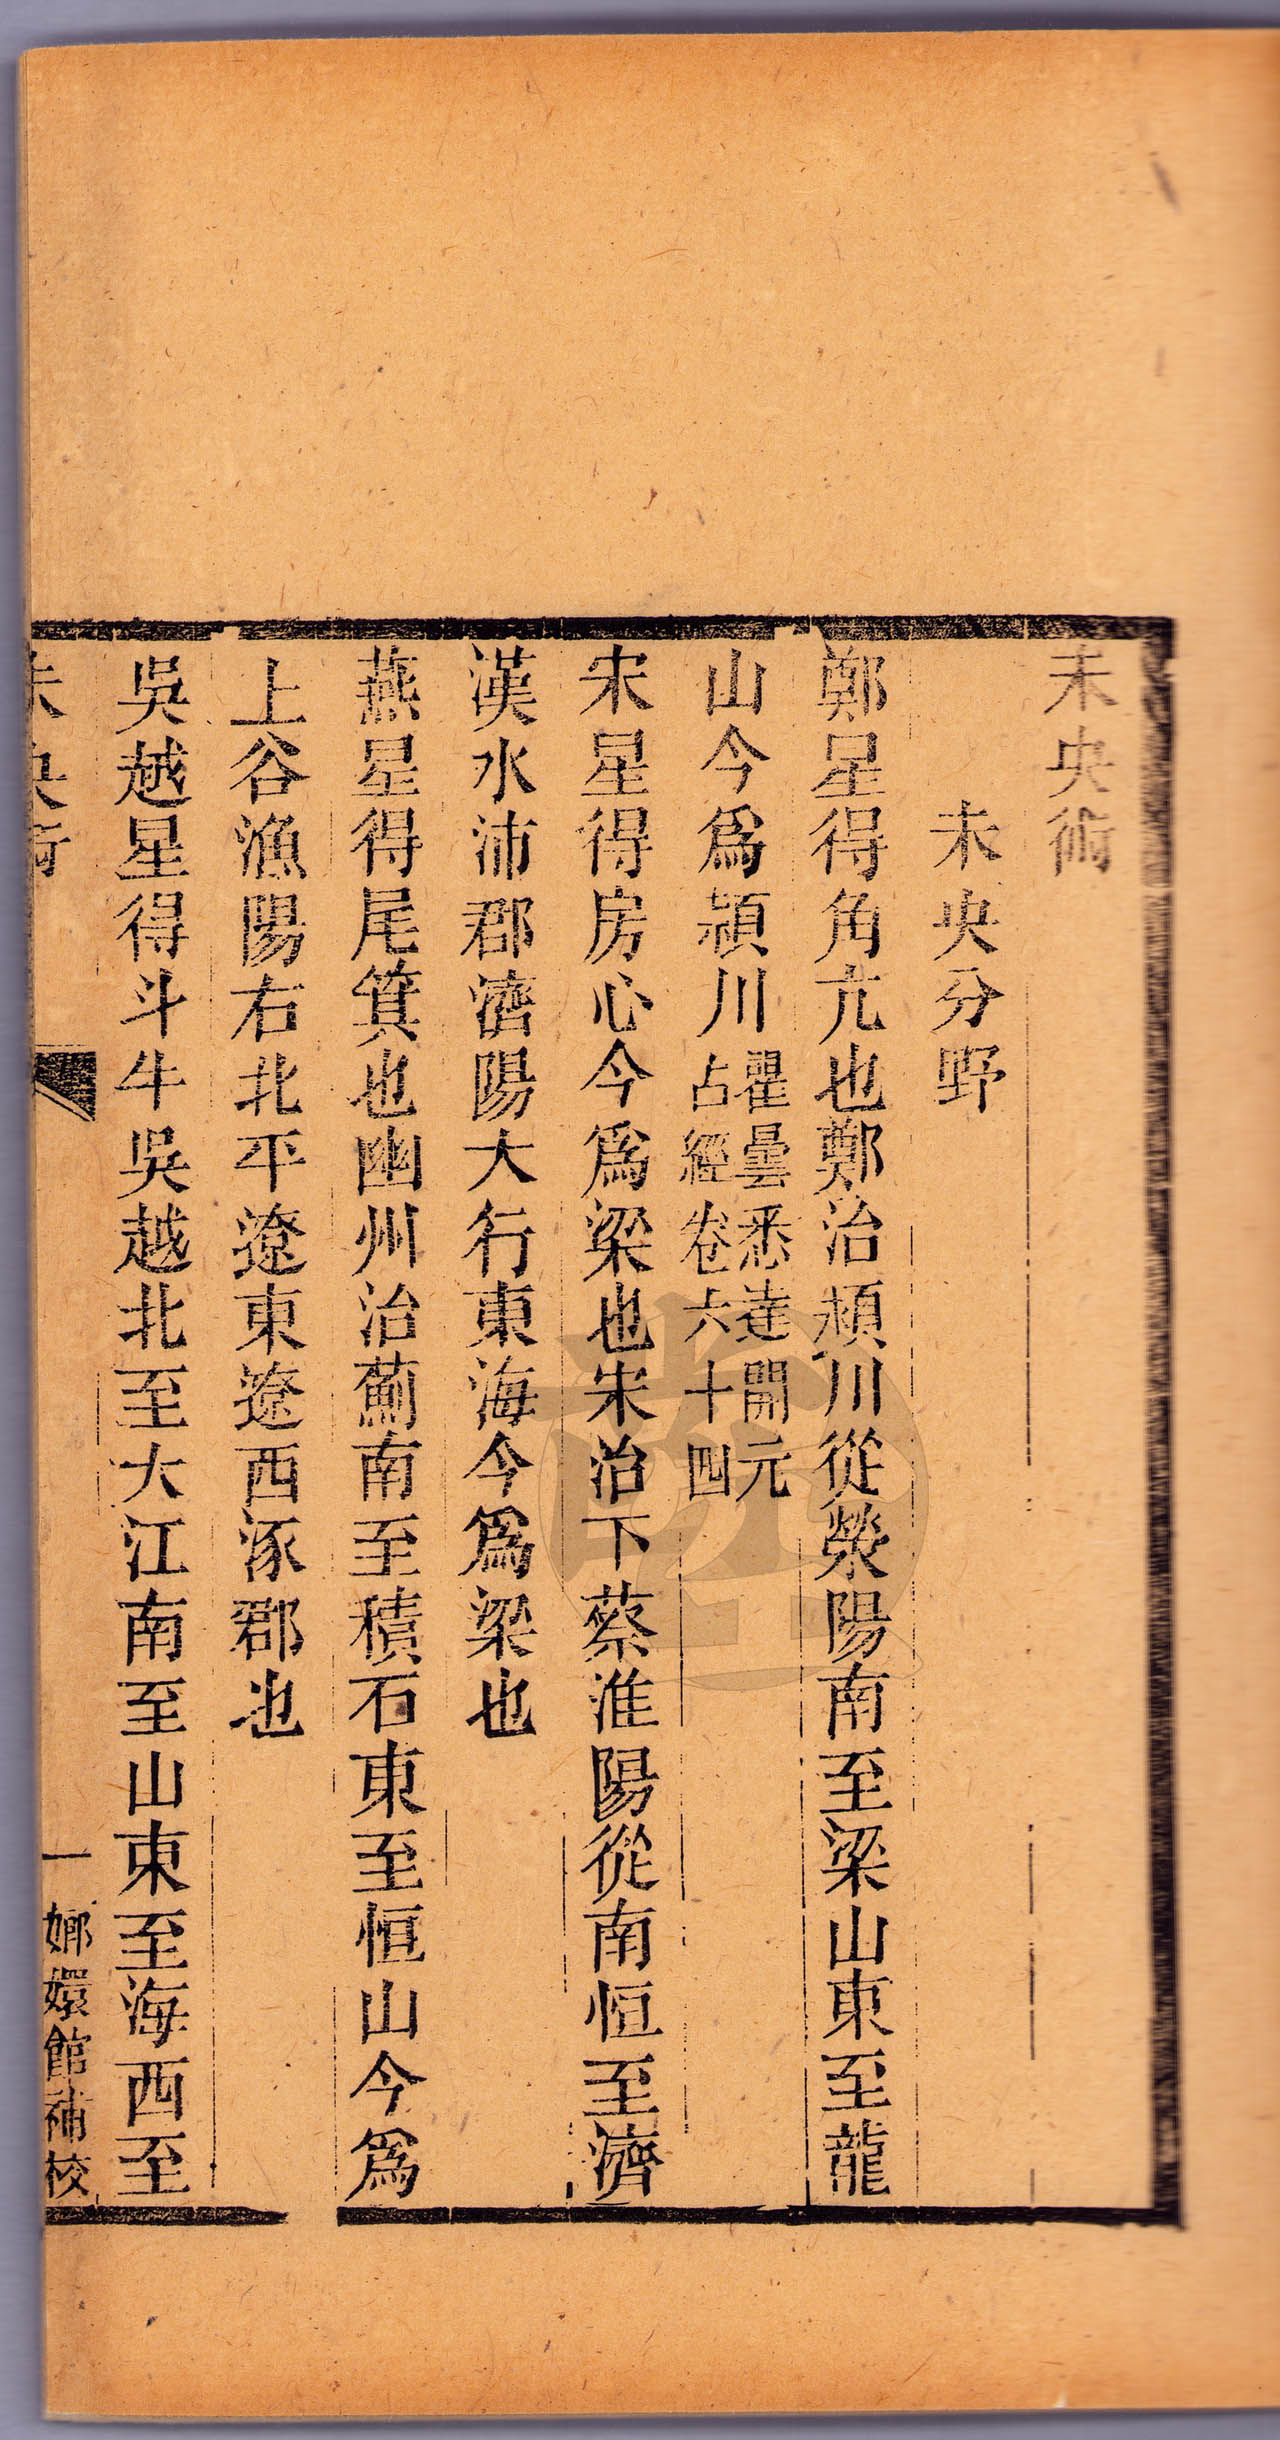 未央術
未央分野
鄭星得角亢也鄭治潁川從滎陽南至梁山東至龍
山今爲潁川瞿曇悉達開元
占經卷六十四
宋星得房心今爲梁也宋治下蔡淮陽從南恒至濟
漢水沛郡濟陽大行東海今爲梁也
燕星得尾箕也幽州治薊南至積石東至恒山今爲
上谷漁陽右北平遼東遼西涿郡也
吳越星得斗牛吳越北至大江南至山東至海西至
未央術
一
嫏嬛館補校